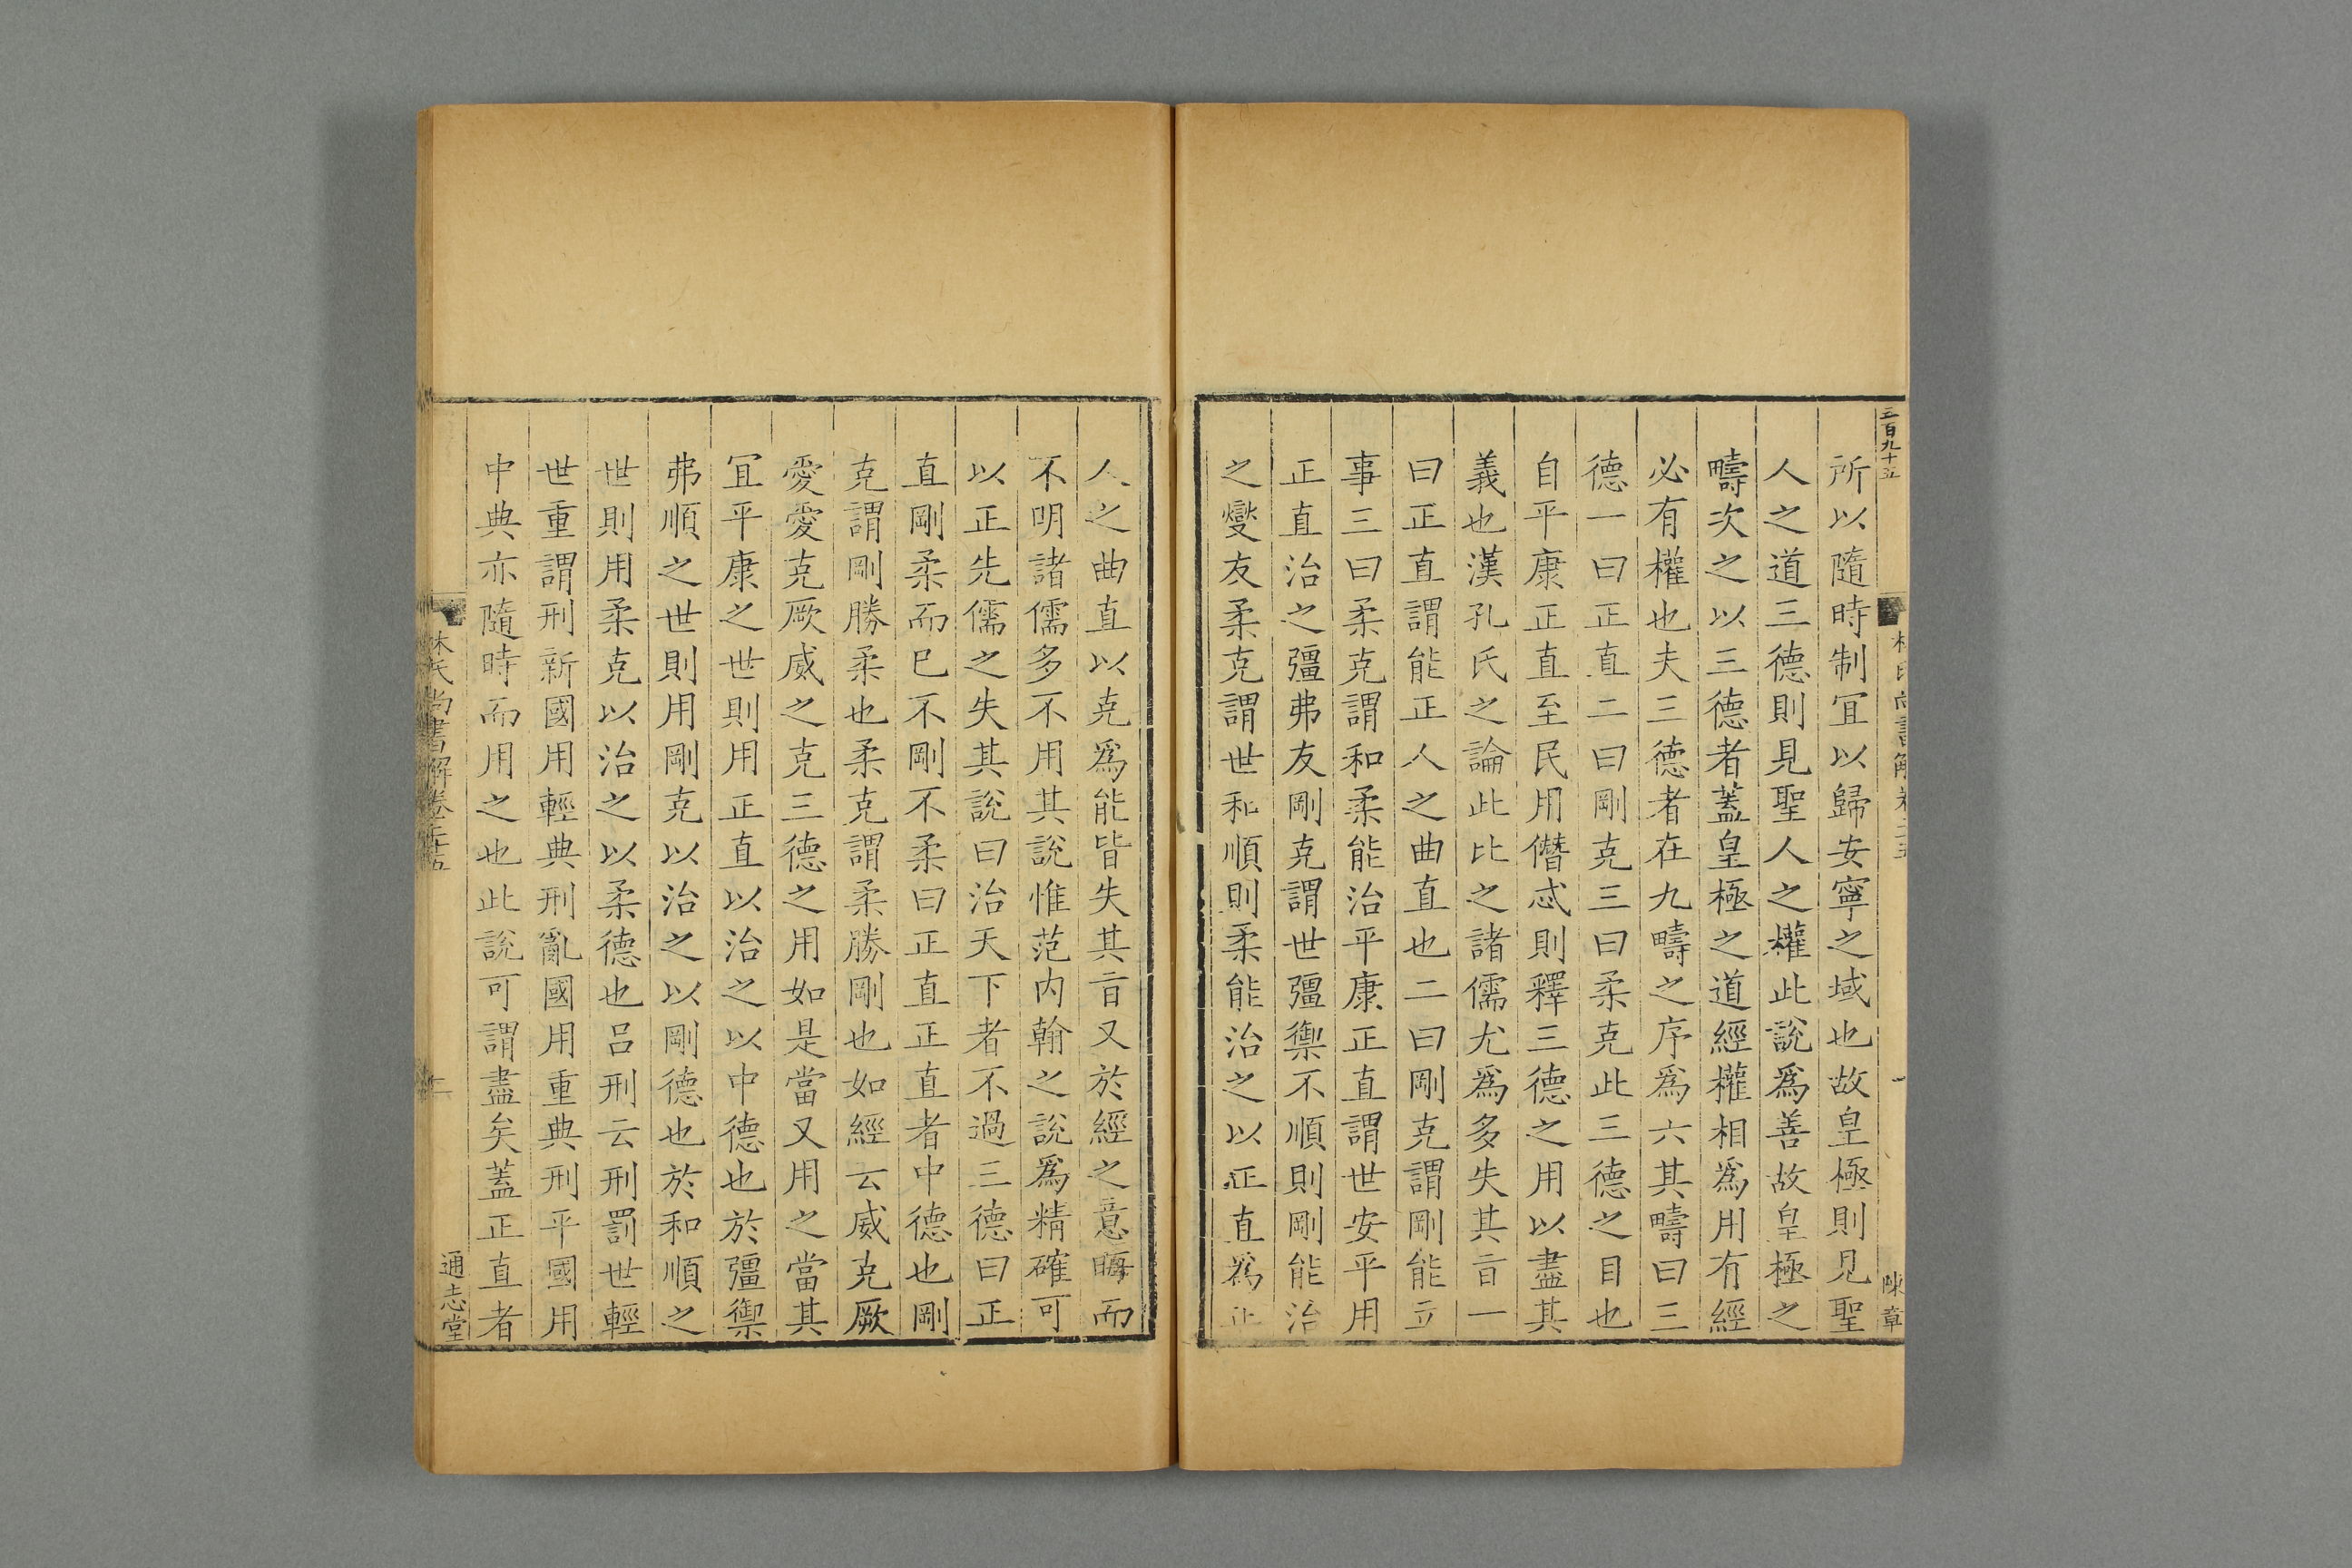 三百九十五
林氏尚書解卷二十五
一
陳章
所以隨時制宜以歸安寧之域也故皇極則見聖
人之道三德則見聖人之權此說爲善故皇極之
疇次之以三德者蓋皇極之道經權相爲用有經
必有權也夫三德者在九疇之序爲六其疇曰三
德一曰正直二曰剛克三曰柔克此三德之目也
自平康正直至民用僭忒則釋三德之用以盡其
義也漢孔氏之論此比之諸儒尤爲多失其旨一
曰正直謂能正人之曲直也二曰剛克謂剛能立
事三曰柔克謂和柔能治平康正直謂世安平用
正直治之彊弗友剛克謂世彊禦不順則剛能治
之燮友柔克謂世和順則柔能治之以正直爲正
人之曲直以克爲能皆失其旨又於經之意晦而
不明諸儒多不用其說惟范内翰之說爲精確可
以正先儒之失其說曰治天下者不過三德曰正
直剛柔而已不剛不柔曰正直正直者中德也剛
克謂剛勝柔也柔克謂柔勝剛也如經云威克厥
愛愛克厥威之克三德之用如是當又用之當其
宜平康之世則用正直以治之以中德也於彊禦
弗順之世則用剛克以治之以剛德也於和順之
世則用柔克以治之以柔德也呂刑云刑罰世輕
世重謂刑新國用輕典刑亂國用重典刑平國用
中典亦隨時而用之也此說可謂盡矣蓋正直者
林氏尚書解卷二十五
二
通志堂